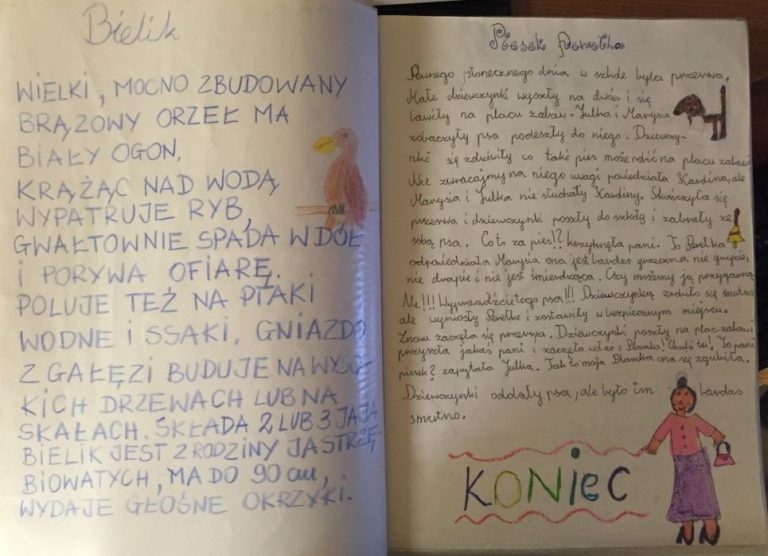 Bielik
WIELKI, MOCNO ZBUDOWANY
BRĄZOWY ORZEŁ MA
BIAŁY OGON.
KRĄŻĄC NAD WODĄ
WYPATRUJE RYB,
GWAŁTOWNIE SPADA W DÓŁ
I PORYWA OFIARĘ.
POLUJE TEŻ NA PTAKI
WODNE I SSAKI. GNIAZDO
Z GAŁĘZI BUDUJE NA WYSO-
KICH DRZEWACH LUB NA
SKAŁACH. SKŁADA 2 LUB 3 JAJA
BIELIK JEST Z RODZINY JASTRZĘ-
BIOWATYCH, MA DO 90 cm,
WYDAJE GŁOŚNE OKRZYKI.
Piesek Perełka
Pewnego słonecznego dnia w szkole była przerwa.
Małe dziewczynki wyszły na dwór i się
bawiły na placu zabaw. Julka i Marysia
zobaczyły psa podeszły do niego. Dziewczy-
nki się zdziwiły co taki pies może robić na placu zabaw
Nie zwracajmy na niego uwagi powiedziała Karolina, ale
Marysia i Julka nie słuchały Karoliny. Skończyła się
przerwa i dziewczynki poszły do szkoły i zabrały ze
sobą psa. Co to za pies!? krzyknęła pani. To Perełka
odpowiedziała Marysia ona jest bardzo grzeczna nie gryzie,
nie drapie i nie jest śmierdząca. Czy możemy ją
Nie!!! Wyprowadźcie tego psa!!! Dziewczynką zrobiło się smutno,
ale wyniosły Perełke i zostawiły w bezpiecznym miejscu.
Znowu zaczęła się przerwa. Dziewczynki poszły na plac zabaw
przyszła jakaś pani i zaczęła wołać Chodź tu! To pani
piesek? zapytała Julka. Tak to moja ona się zgubiła.
Dziewczynki oddały psa, ale było im bardzo
smutno.
KONIEC